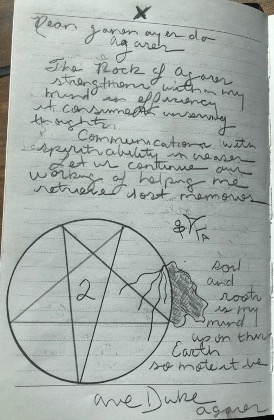 Dear ganamayer do
agarer
The Rock of Agarer
strengthens within my
mind in efficiency
it consumes unserving
thoughts.
Communications with
spirit ability increases
Let us continue our
working of helping me
retrieve lost memories
2
soil
and
roots
is my
mind
up on this
Earth
so mote it be
ave Duke
agarer